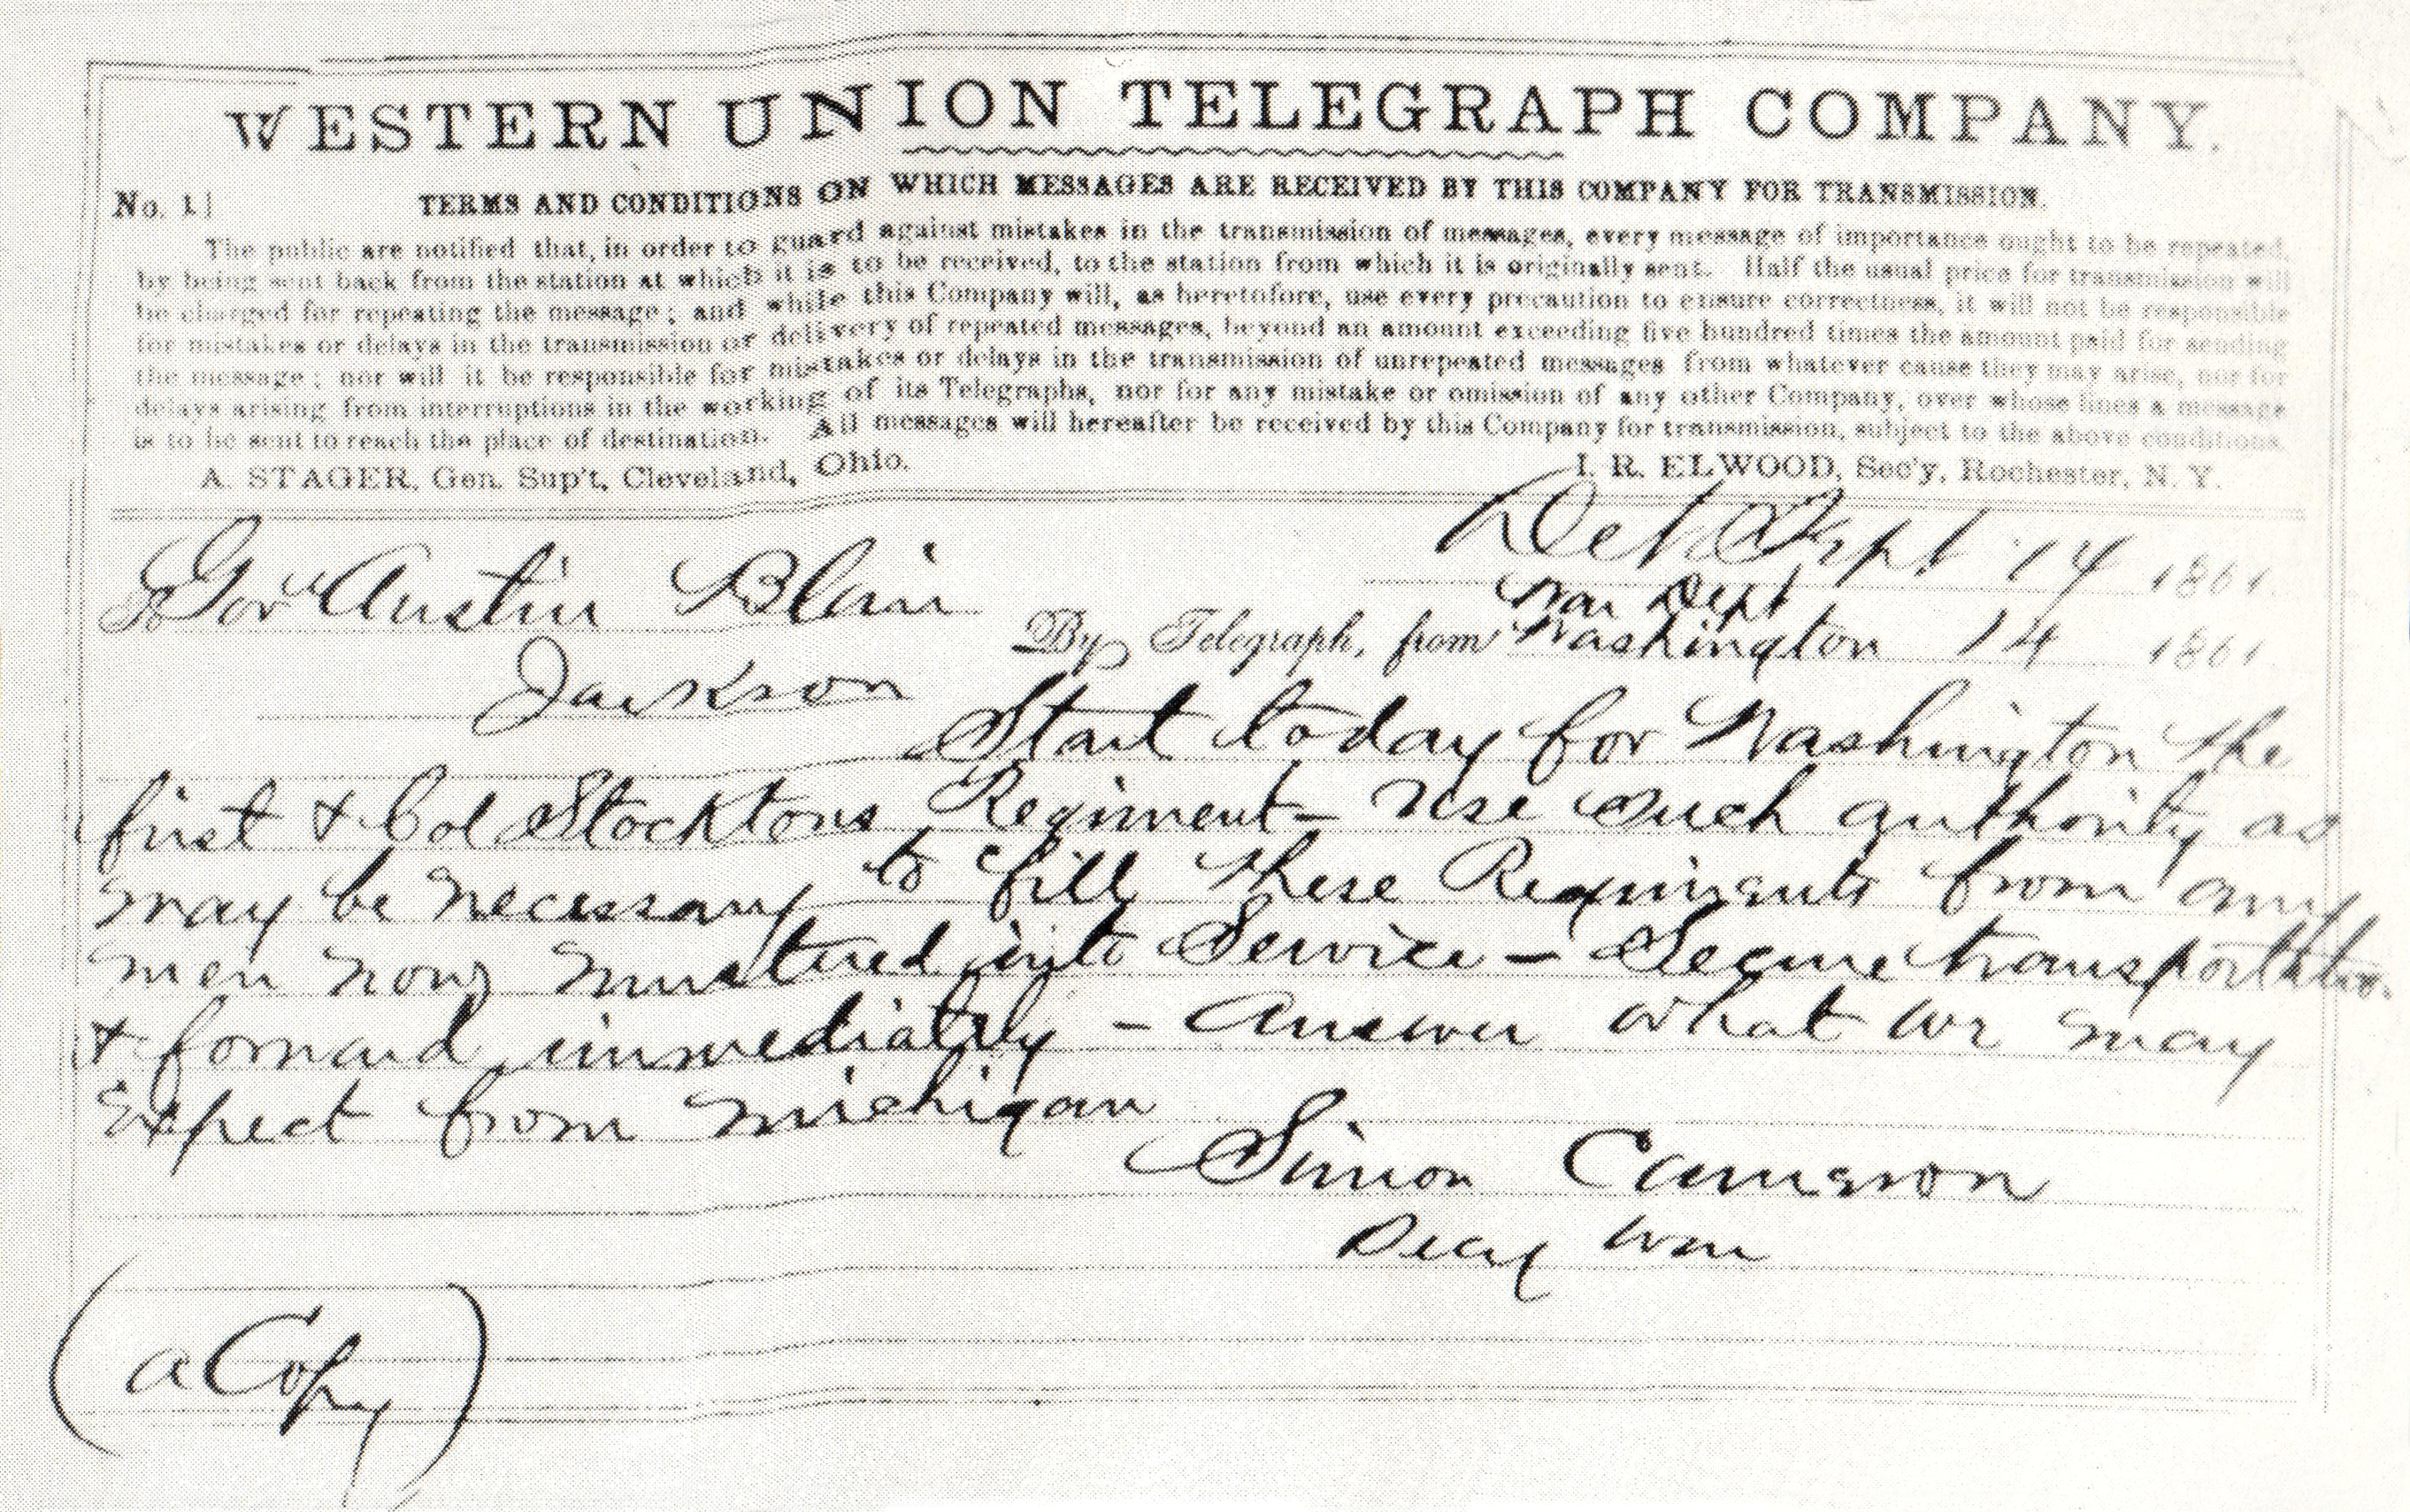 WESTERN UNION TELEGRAPH COMPANY.
No. 1
TERMS AND CONDITIONS ON WHICH MESSAGES ARE RECEIVED BY THIS COMPANY FOR TRANSMISSION.
The public are notified that, in order to guard against mistakes in the transmission of messages, every message of importance ought to be repeated,
by being sent back from the station at which it is to be received, to the station from which it is originally sent. Half the usual price for transmission will
be charged for repeating the message; and while this Company will, as heretofore, use every precaution to ensure correctness, it will not be responsible
for mistakes or delays in the transmission or delivery of repeated messages, beyond an amount exceeding five hundred times the amount paid for sending
the message; nor will it be responsible for mistakes or delays in the transmission of unrepeated messages from whatever cause they may arise, nor for
delays arising from interruptions in the working of its Telegraphs, nor for any mistake or omission of any other Company, over whose lines a message
is to be sent to reach the place of destination. All messages will hereafter be received by this Company for transmission, subject to the above conditions.
A. STAGER, Gen. Sup't, Cleveland, Ohio.
I. R. ELWOOD, Sec'y, Rochester, N. Y.
Det Sept 14 1861.
To Gov Austin Blair
War Dept
By Telegraph, from Washington 14 1861
Jackson
Start today for Washington the
first & Col Stocktons Regiment - Use such authority as
may be necessary to fill these Regiments from any
men now mustered into Service - Secure transportation
& forward immediately - Answer what we may
Expect from Michigan
Simon Cameron
Secy War
(a Copy)